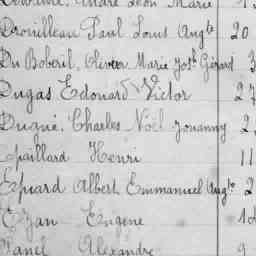 André Léon Marie
Drouilleau Paul Louis Augte 20
Du Boberil, Olivier Marie Josh Gérard 3
Dugas Edouard Victor 27
Dugué, Charles Noël Jouanny 2
Epaillard Henri 11
Epiard Albert Emmanuel Augte 2
Ezan Eugène 10
Fanel Alexandre 9